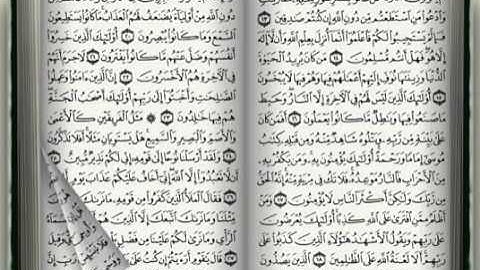 وَٱدْعُوا۟ مَنِ ٱسْتَطَعْتُم مِّن دُونِ ٱللَّهِ إِن كُنتُمْ صَـٰدِقِينَ ١٣
فَإِلَّمْ يَسْتَجِيبُوا۟ لَكُمْ فَٱعْلَمُوٓا۟ أَنَّمَآ أُنزِلَ بِعِلْمِ ٱللَّهِ وَأَن لَّآ
إِلَـٰهَ إِلَّا هُوَ فَهَلْ أَنتُم مُّسْلِمُونَ ١٤ مَن كَانَ يُرِيدُ ٱلْحَيَوٰةَ
ٱلدُّنْيَا وَزِينَتَهَا نُوَفِّ إِلَيْهِمْ أَعْمَـٰلَهُمْ فِيهَا وَهُمْ فِيهَا لَا يُبْخَسُونَ
١٥ أُو۟لَـٰٓئِكَ ٱلَّذِينَ لَيْسَ لَهُمْ فِى ٱلْـَٔاخِرَةِ إِلَّا ٱلنَّارُ وَحَبِطَ
مَا صَنَعُوا۟ فِيهَا وَبَـٰطِلٌ مَّا كَانُوا۟ يَعْمَلُونَ ١٦ أَفَمَن كَانَ
عَلَىٰ بَيِّنَةٍ مِّن رَّبِّهِۦ وَيَتْلُوهُ شَاهِدٌ مِّنْهُ وَمِن قَبْلِهِۦ كِتَـٰبُ
مُوسَىٰٓ إِمَامًا وَرَحْمَةً أُو۟لَـٰٓئِكَ يُؤْمِنُونَ بِهِۦ وَمَن يَكْفُرْ بِهِۦ
مِنَ ٱلْأَحْزَابِ فَٱلنَّارُ مَوْعِدُهُۥ فَلَا تَكُ فِى مِرْيَةٍ مِّنْهُ إِنَّهُ ٱلْحَقُّ
مِن رَّبِّكَ وَلَـٰكِنَّ أَكْثَرَ ٱلنَّاسِ لَا يُؤْمِنُونَ ١٧ وَمَنْ
أَظْلَمُ مِمَّنِ ٱفْتَرَىٰ عَلَى ٱللَّهِ كَذِبًا أُو۟لَـٰٓئِكَ يُعْرَضُونَ
عَلَىٰ رَبِّهِمْ وَيَقُولُ ٱلْأَشْهَـٰدُ هَـٰٓؤُلَآءِ ٱلَّذِينَ كَذَبُوا۟ عَلَىٰ
رَبِّهِمْ أَلَا لَعْنَةُ ٱللَّهِ عَلَى ٱلظَّـٰلِمِينَ ١٨ ٱلَّذِينَ يَصُدُّونَ
دُونِ ٱللَّهِ مِنْ أَوْلِيَآءَ يُضَـٰعَفُ لَهُمُ ٱلْعَذَابُ مَا كَانُوا۟ يَسْتَطِيعُونَ
ٱلسَّمْعَ وَمَا كَانُوا۟ يُبْصِرُونَ ٢٠ أُو۟لَـٰٓئِكَ ٱلَّذِينَ خَسِرُوٓا۟
أَنفُسَهُمْ وَضَلَّ عَنْهُم مَّا كَانُوا۟ يَفْتَرُونَ ٢١ لَا جَرَمَ أَنَّهُمْ
فِى ٱلْـَٔاخِرَةِ هُمُ ٱلْأَخْسَرُونَ ٢٢ إِنَّ ٱلَّذِينَ ءَامَنُوا۟ وَعَمِلُوا۟
ٱلصَّـٰلِحَـٰتِ وَأَخْبَتُوٓا۟ إِلَىٰ رَبِّهِمْ أُو۟لَـٰٓئِكَ أَصْحَـٰبُ ٱلْجَنَّةِ
هُمْ فِيهَا خَـٰلِدُونَ ٢٣ ۞ مَثَلُ ٱلْفَرِيقَيْنِ كَٱلْأَعْمَىٰ
وَٱلْأَصَمِّ وَٱلْبَصِيرِ وَٱلسَّمِيعِ هَلْ يَسْتَوِيَانِ مَثَلًا أَفَلَا تَذَكَّرُونَ
٢٤ وَلَقَدْ أَرْسَلْنَا نُوحًا إِلَىٰ قَوْمِهِۦٓ إِنِّى لَكُمْ نَذِيرٌ مُّبِينٌ ٢٥
أَن لَّا تَعْبُدُوٓا۟ إِلَّا ٱللَّهَ إِنِّىٓ أَخَافُ عَلَيْكُمْ عَذَابَ يَوْمٍ أَلِيمٍ
٢٦ فَقَالَ ٱلْمَلَأُ ٱلَّذِينَ كَفَرُوا۟ مِن قَوْمِهِۦ مَا نَرَىٰكَ
مِّثْلَنَا وَمَا نَرَىٰكَ ٱتَّبَعَكَ إِلَّا ٱلَّذِينَ هُمْ
ٱلرَّأْىِ وَمَا نَرَىٰ لَكُمْ عَلَيْنَا مِن فَضْلٍۭ بَلْ
قَالَ يَـٰقَوْمِ أَرَءَيْتُمْ إِن كُنتُ عَلَىٰ